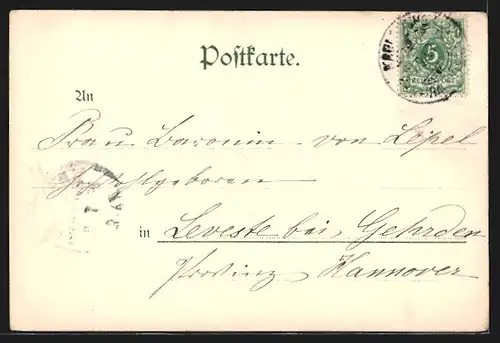 Postkarte.
5
An
Frau Baronin von Löpel
Hochwohlgeboren
in Leveste bei Gehrden
Provinz Hannover